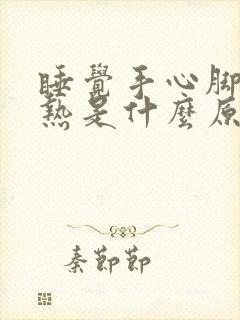 睡覺手心腳
熱是什麼原
秦節節